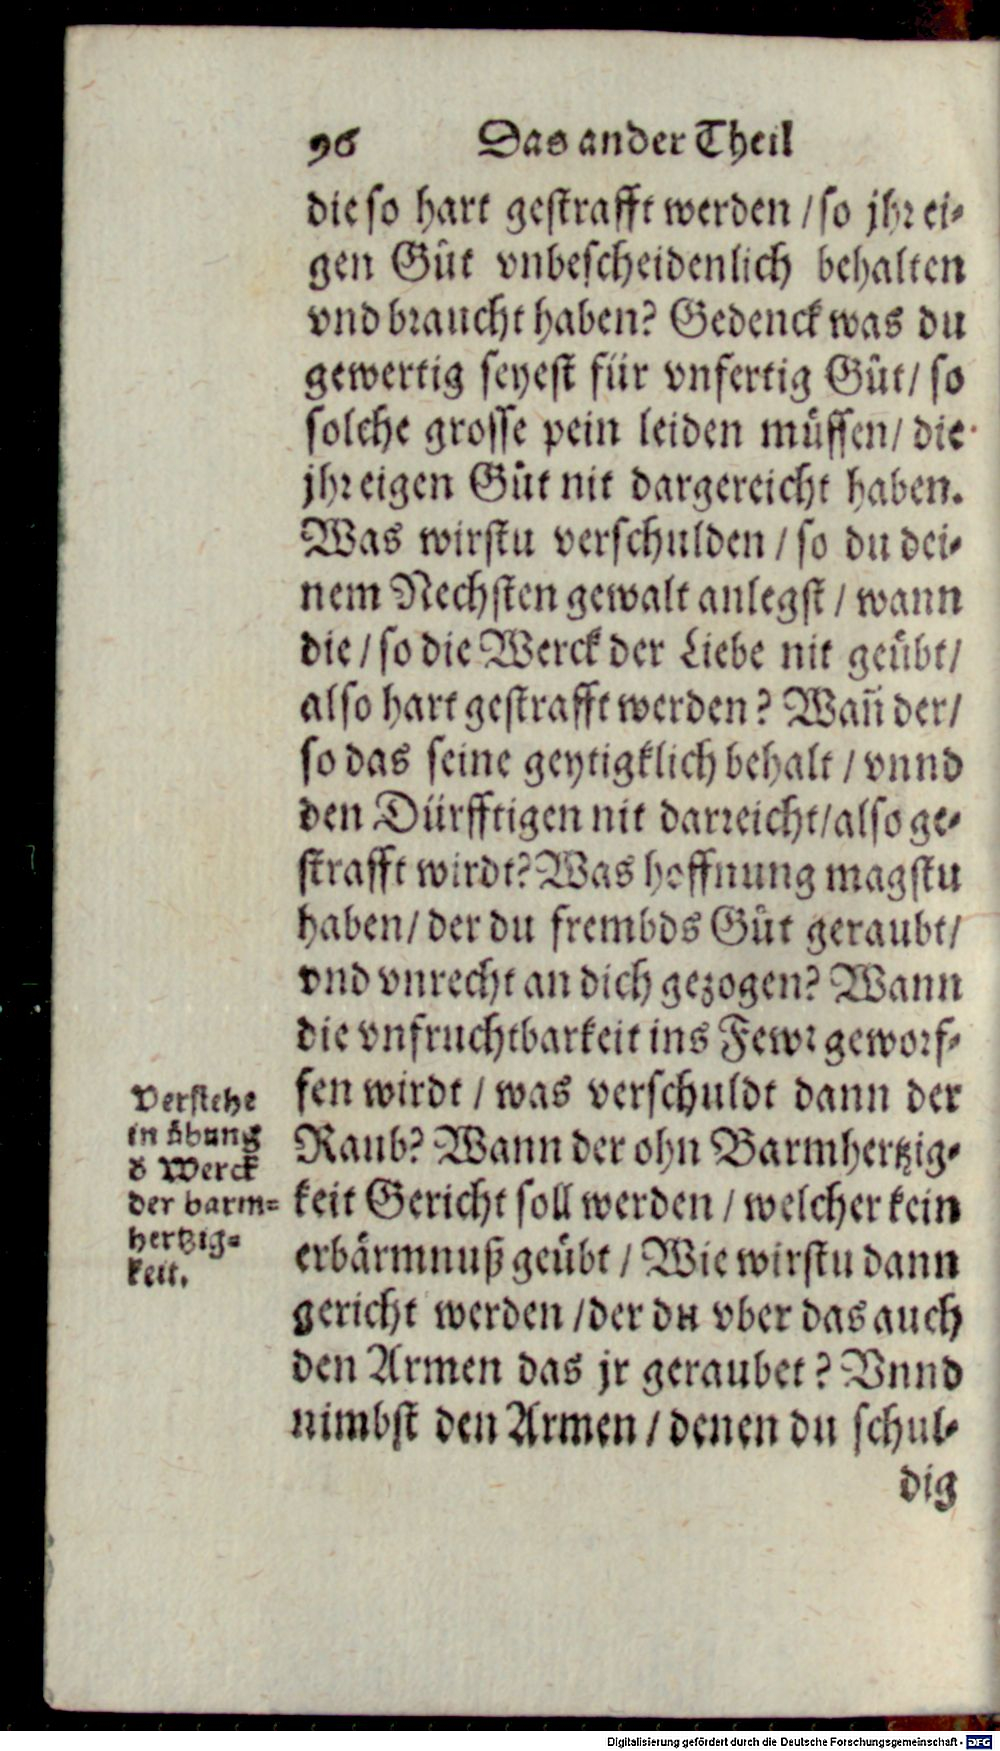 96 Das ander Theil
die so hart gestrafft werden / so jhr ei-
gen Gůt vnbescheidenlich behalten
vnd braucht haben? Gedenck was du
gewertig seyest für vnfertig Gůt / so
solche grosse pein leiden müssen / die
jhr eigen Gůt nit dargereicht haben.
Was wirstu verschulden / so du dei-
nem Nechsten gewalt anlegst / wann
die / so die Werck der Liebe nit geübt /
also hart gestrafft werden? Wañ der /
so das seine geytigklich behalt / vnnd
den Dürfftigen nit darreicht / also ge-
strafft wirdt? Was hoffnung magstu
haben / der du frembds Gůt geraubt /
vnd vnrecht an dich gezogen? Wann
die vnfruchtbarkeit ins Fewr geworf-
fen wirdt / was verschuldt dann der
Raub? Wann der ohn Barmhertzig-
keit Gericht soll werden / welcher kein
erbärmnuß geübt / Wie wirstu dann
gericht werden / der du vber das auch
den Armen das jr geraubet? Vnnd
nimbst den Armen / denen du schul-
dig
Verstehe
in übung
d' Werck
der barm-
hertzig-
keit.
Digitalisierung gefördert durch die Deutsche Forschungsgemeinschaft - DFG